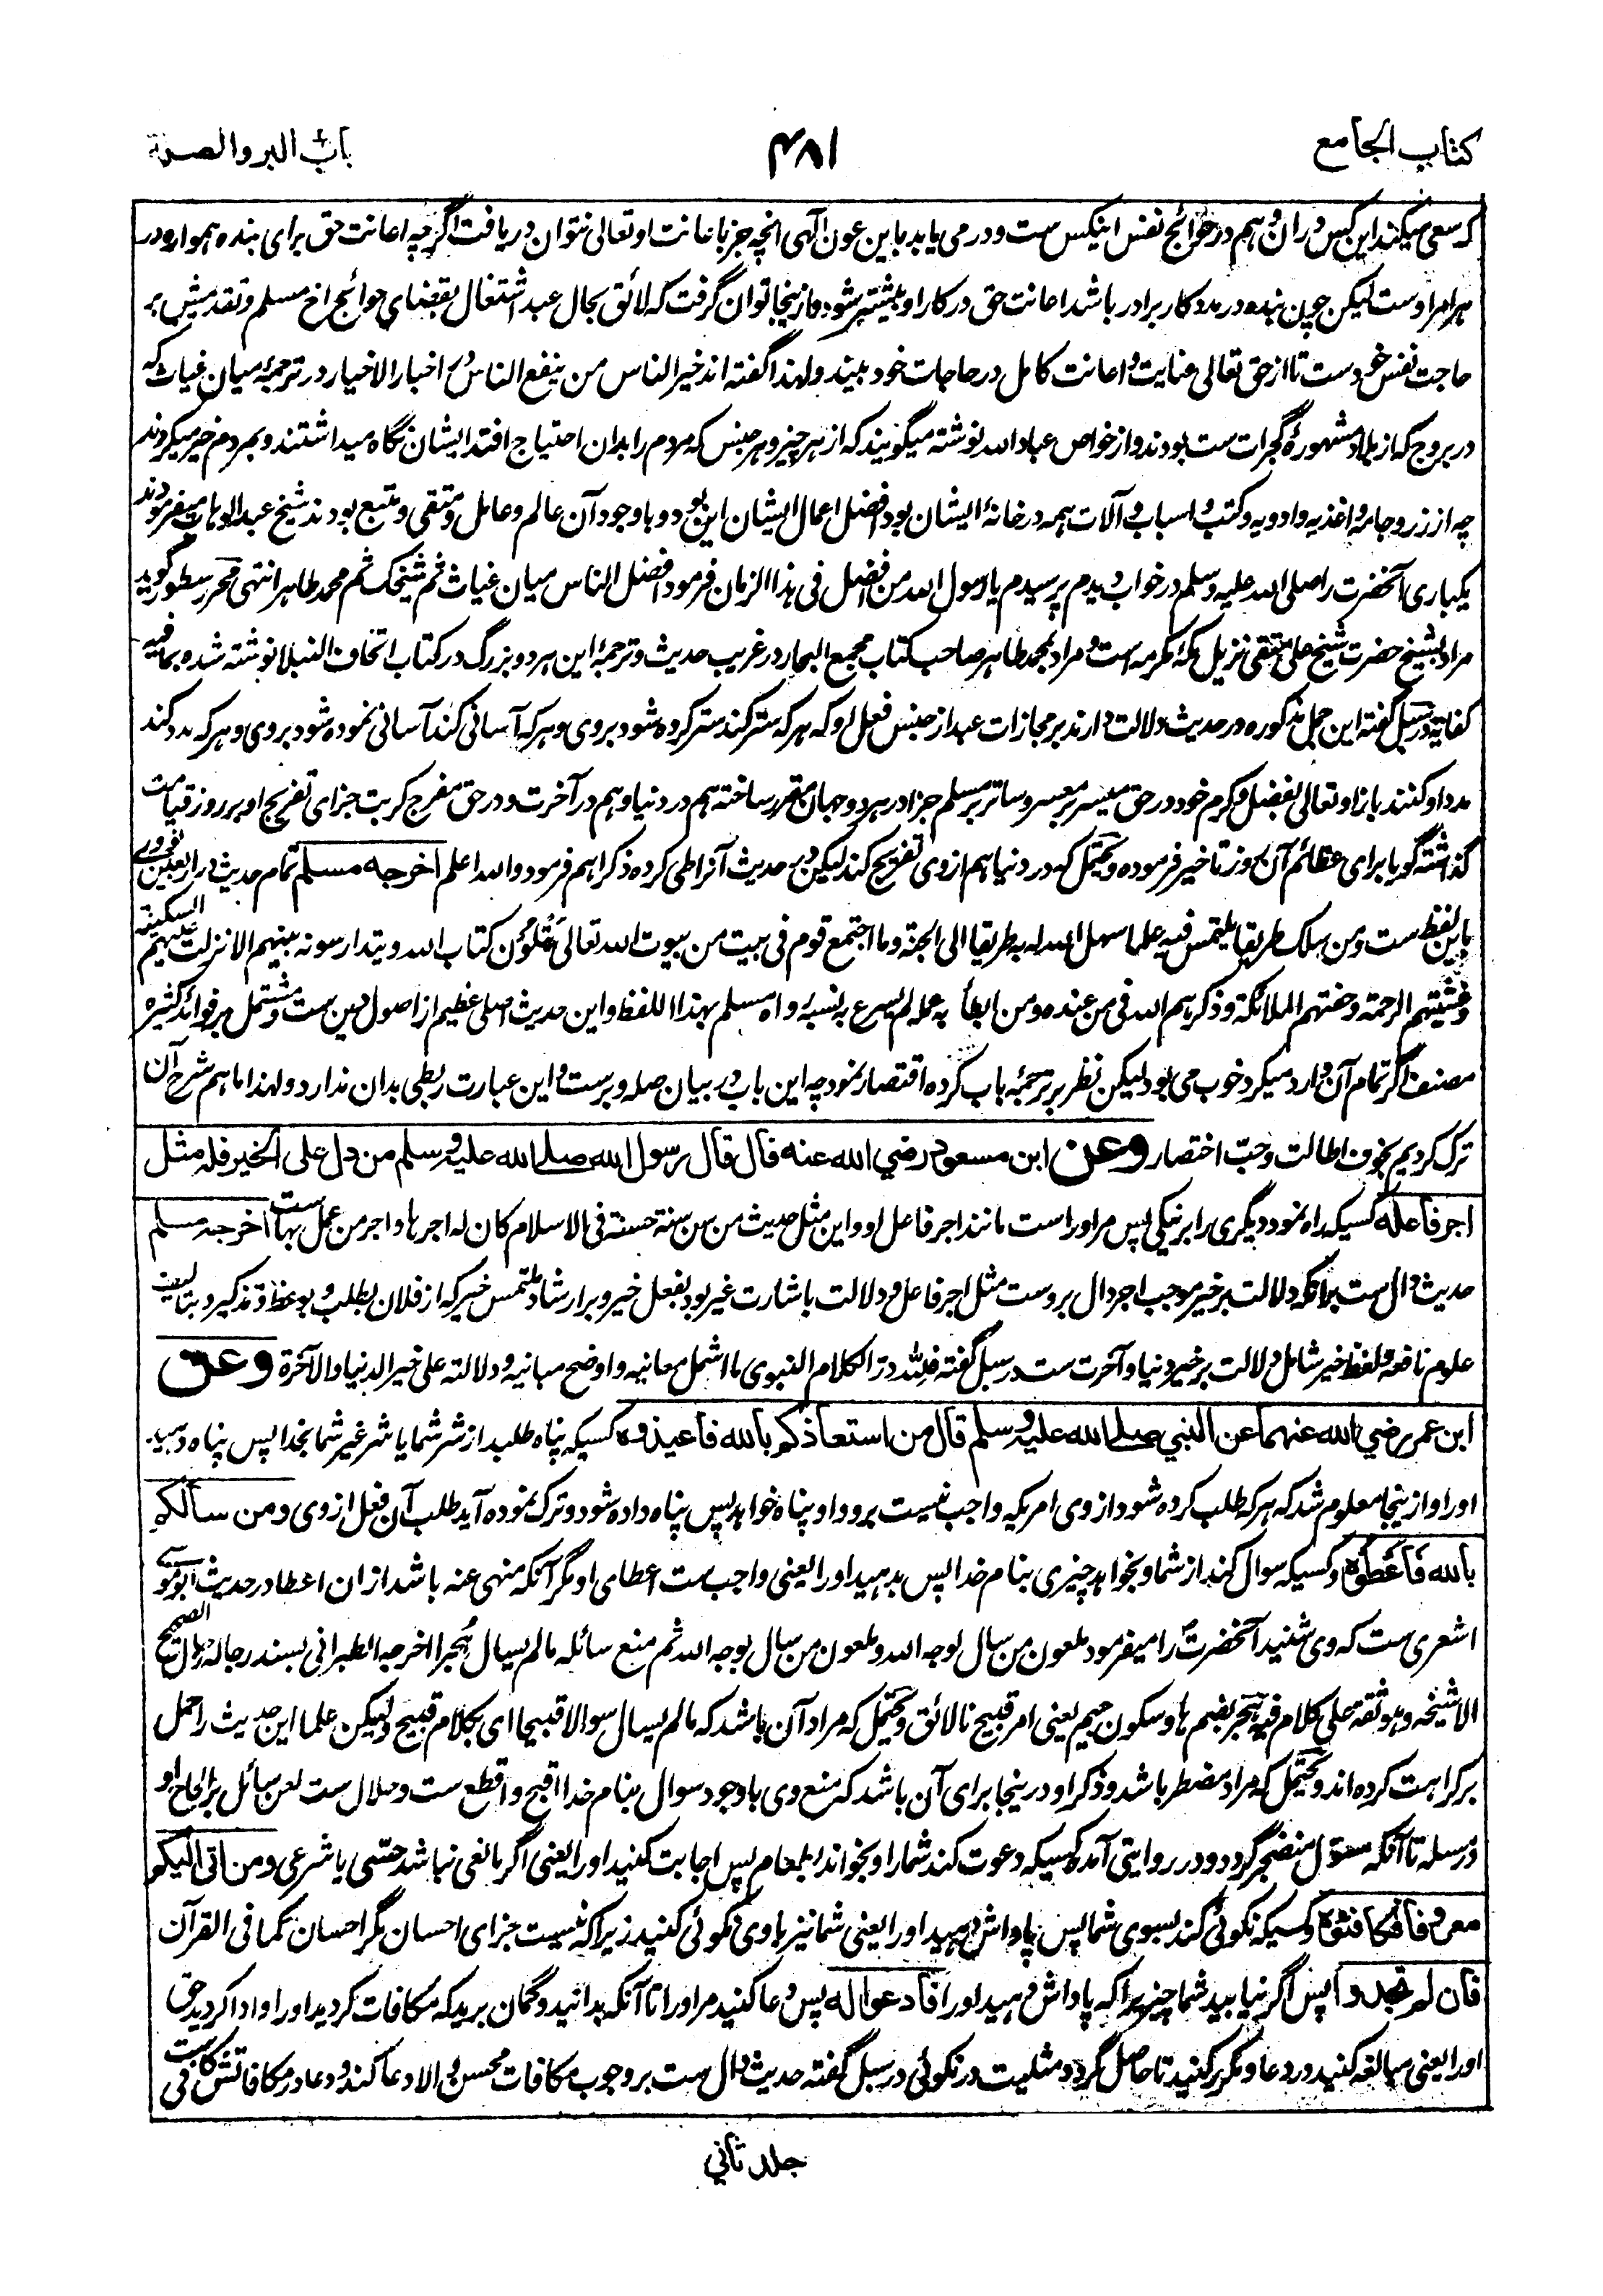 کتاب الجامع
۴۸۱
باب البر والصلة
که سعی میکند این کس دران و هم در حوائج نفس اینکس ست و در می یابد باین عون آلهی انچه جز باعانت او تعالی نتوان دریافت اگرچه اعانت حق برای بنده همواره در
هر امر اوست لیکن چون بنده در مدد کار برادر باشد اعانت حق در کار او بیشتر شود و ازینجا توان گرفت که لائق بحال عبد اشتغال بقضای حوائج اخ مسلم و تقدیمش بر
حاجت نفس خودست تا از حق تعالی عنایت و اعانت کامل در حاجات خود بیند ولهذا گفته اند خیر الناس من ینفع الناس در اخبار الاخیار در ترجمهٔ میان غیاث که
در بروج که از بلاد مشهورهٔ گجرات ست بودند و از خواص عباد الله نوشته میگویند که از هر چیز و هر جنس که مردم را بدان احتیاج افتد ایشان نگاه میداشتند و بمردم خبر میکردند
چه از زر و جامه و اغذیه و ادویه و کتب و اسباب و آلات همه در خانهٔ ایشان بود افضل اعمال ایشان این بود و باوجود آن عالم و عامل و متقی و متبع بودند شیخ عبد الوهاب میفرمودند
یکباری آنحضرت را صلی الله علیه وسلم در خواب دیدم پرسیدم یا رسول الله من افضل فی هذا الزمان فرمود افضل الناس میان غیاث ثم شیخک ثم محمد طاهر انتهی محرر سطور گوید
مراد بشیخ حضرت شیخ علی متقی نزیل مکه مکرمه است و مراد بمحمد طاهر صاحب کتاب مجمع البحار در غریب حدیث و ترجمهٔ این هر دو بزرگ در کتاب اتحاف النبلا نوشته شده بما فیه
کفایة و در سبل گفته این جمل مذکوره در حدیث دلالت دارند بر مجازات عبد از جنس فعل او که هر که ستر کند ستر کرده شود بر وی و هر که آسانی کند آسانی نموده شود بر وی و هر که مدد کند
مدد او کنند باز او تعالی بفضل و کرم خود در حق میسر بر معسر و ساتر بر مسلم جزا در هر دو جهان مقرر ساخته هم در دنیا و هم در آخرت و در حق مفرج کربت جزای تفریج او بر روز قیامت
گذاشته گویا برای عظائم آن روز تاخیر فرموده و محتمل که در دنیا هم از وی تفریج کند لیکن در حدیث آنرا طی کرده ذکر اهم فرمود والله اعلم اخرجه مسلم تمام حدیث در اربعین نووی
باین لفظ ست ومن سلک طریقا یلتمس فیه علما سهل الله له به طریقا الی الجنة وما اجتمع قوم فی بیت من بیوت الله تعالی یتلون کتاب الله ویتدارسونه بینهم الا نزلت علیهم السکینة
وغشیتهم الرحمة وحفتهم الملائکة وذکرهم الله فی من عنده ومن ابطأ به عمله لم یسرع به نسبه رواه مسلم بهذا اللفظ و این حدیث اصلی عظیم از اصول دین ست و مشتمل بر فوائد کثیره
مصنف اگر تمام آن وارد میکرد خوب می بود لیکن نظر بر ترجمهٔ باب کرده اقتصار نمود چه این باب در بیان صله و برست و این عبارت ربطی بدان ندارد ولهذا ما هم شرح آن
ترک کردیم بخوف اطالت و حب اختصار وعن ابن مسعود رضي الله عنه قال قال رسول الله صلے الله عليه وسلم من دل على الخير فله مثل
اجر فاعله کسیکه راه نمود دیگری را بر نیکی پس مر او راست مانند اجر فاعل او و این مثل حدیث من سن سنة حسنة فی الاسلام کان له اجرها و اجر من عمل بهاست اخرجه مسلم
حدیث دال ست برانکه دلالت بر خیر موجب اجر دال بروست مثل اجر فاعل و دلالت باشارت غیر بود بفعل خیر و بر ارشاد ملتمس خیر که از فلان بطلب و بوعظ و تذکیر و بتالیف
علوم نافعه و لفظ خیر شامل دلالت بر خیر دنیا و آخرت ست در سبل گفته فلله در الکلام النبوی ما اشمل معانیه و اوضح مبانیه و دلالته علی خیر الدنیا والآخرة وعن
ابن عمر رضي الله عنهما عن النبي صلے الله عليه وسلم قال من استعاذكم بالله فاعيذوه کسیکه پناه طلبد از شر شما یا شر غیر شما بخدا پس پناه دهید
اورا و ازینجا معلوم شد که هر که طلب کرده شود از وی امریکه واجب نیست برو و او پناه خواهد پس پناه داده شود و ترک نموده آید طلب آن فعل از وی ومن سألكم
بالله فأعطوه و کسیکه سوال کند از شما و بخواهد چیزی بنام خدا پس بدهید اورا یعنی واجب ست اعطای او مگر آنکه منهی عنه باشد ازان اعطا در حدیث ابو موسی
اشعری ست که وی شنید آنحضرت را میفرمود ملعون من سال بوجه الله و ملعون من سال بوجه الله ثم منع سائله ما لم یسال هجرا اخرجه الطبرانی بسند رجاله رجال الصحیح
الا شیخه و هو ثقة علی کلام فیه هجر بضم ها و سکون جیم یعنی امر قبیح نالائق و محتمل که مراد آن باشد که ما لم یسال سوالا قبیحا ای بکلام قبیح ولیکن علما این حدیث را حمل
بر کراهت کرده اند و محتمل که مراد مضطر باشد و ذکر او درینجا برای آن باشد که منع وی باوجود سوال بنام خدا اقبح و اقطع ست و حلال ست لعن سائل بر الحاح او
در مسئله تا آنکه مسئول متضجر گردد و در روایتی آمده کسیکه دعوت کند شما را و بخواند بطعام پس اجابت کنید اورا یعنی اگر مانعی نباشد حسی یا شرعی ومن اتى اليكم
معروفا فكافئوه و کسیکه نکوئی کند بسوی شما پس پاداش دهید اورا یعنی شما نیز با وی نکوئی کنید زیراکه نیست جزای احسان مگر احسان کما فی القرآن
فان لم تجدوا پس اگر نیابید شما چیزیرا که پاداش دهید اورا فادعوا له پس دعا کنید مر اورا تا آنکه بدانید و گمان برید که مکافات کردید اورا و ادا کردید حق
اورا یعنی مبالغه کنید در دعا و مکرر کنید تا حاصل گردد مثلیت در نکوئی در سبل گفته حدیث دال ست بر وجوب مکافات محسن و الا دعا کند و دعا در مکافاتش کافی ست
جلد ثاني